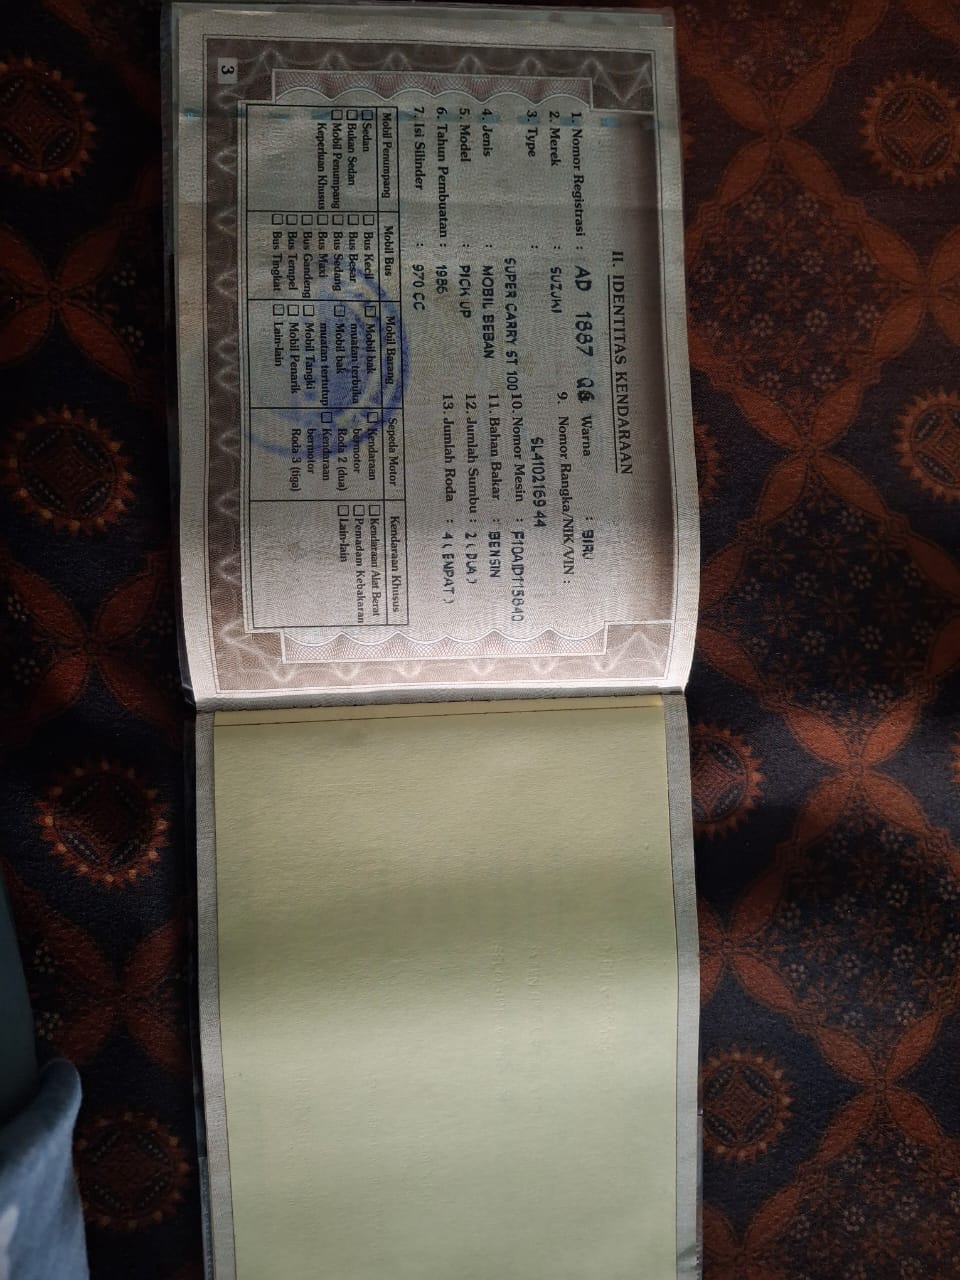 II. IDENTITAS KENDARAAN
1. Nomor Registrasi : AD 1887
2. Merek : SUZUKI
3. Type :
SUPER CARRY ST 100
4. Jenis : MOBIL BEBAN
5. Model : PICK UP
6. Tahun Pembuatan : 1986
7. Isi Silinder : 970 CC
Warna : BIRU
9. Nomor Rangka/NIK/VIN :
SL410216944
10. Nomor Mesin : F10AID115840
11. Bahan Bakar : BENSIN
12. Jumlah Sumbu : 2 ( DUA )
13. Jumlah Roda : 4 ( EMPAT )
Mobil Penumpang
Sedan
Bukan Sedan
Mobil Penumpang
Keperluan Khusus
Mobil Bus
Bus Kecil
Bus Besar
Bus Sedang
Bus Maxi
Bus Gandeng
Bus Tempel
Bus Tingkat
Mobil Barang
Mobil bak
muatan terbuka
Mobil bak
muatan tertutup
Mobil Tangki
Mobil Penarik
Lain-lain
Sepeda Motor
Kendaraan
bermotor
Roda 2 (dua)
Kendaraan
bermotor
Roda 3 (tiga)
Kendaraan Khusus
Kendaraan Alat Berat
Pemadam Kebakaran
Lain-lain
3